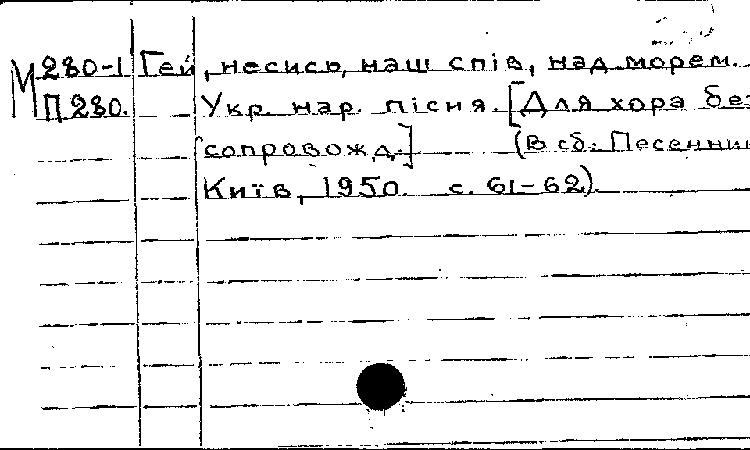 М 280-1 Гей, несись, наш спів, над морем.
П 280. Укр. нар. пісня. [Для хора без
сопровожд.] (В сб: Песенник
Київ, 1950. с. 61-62).